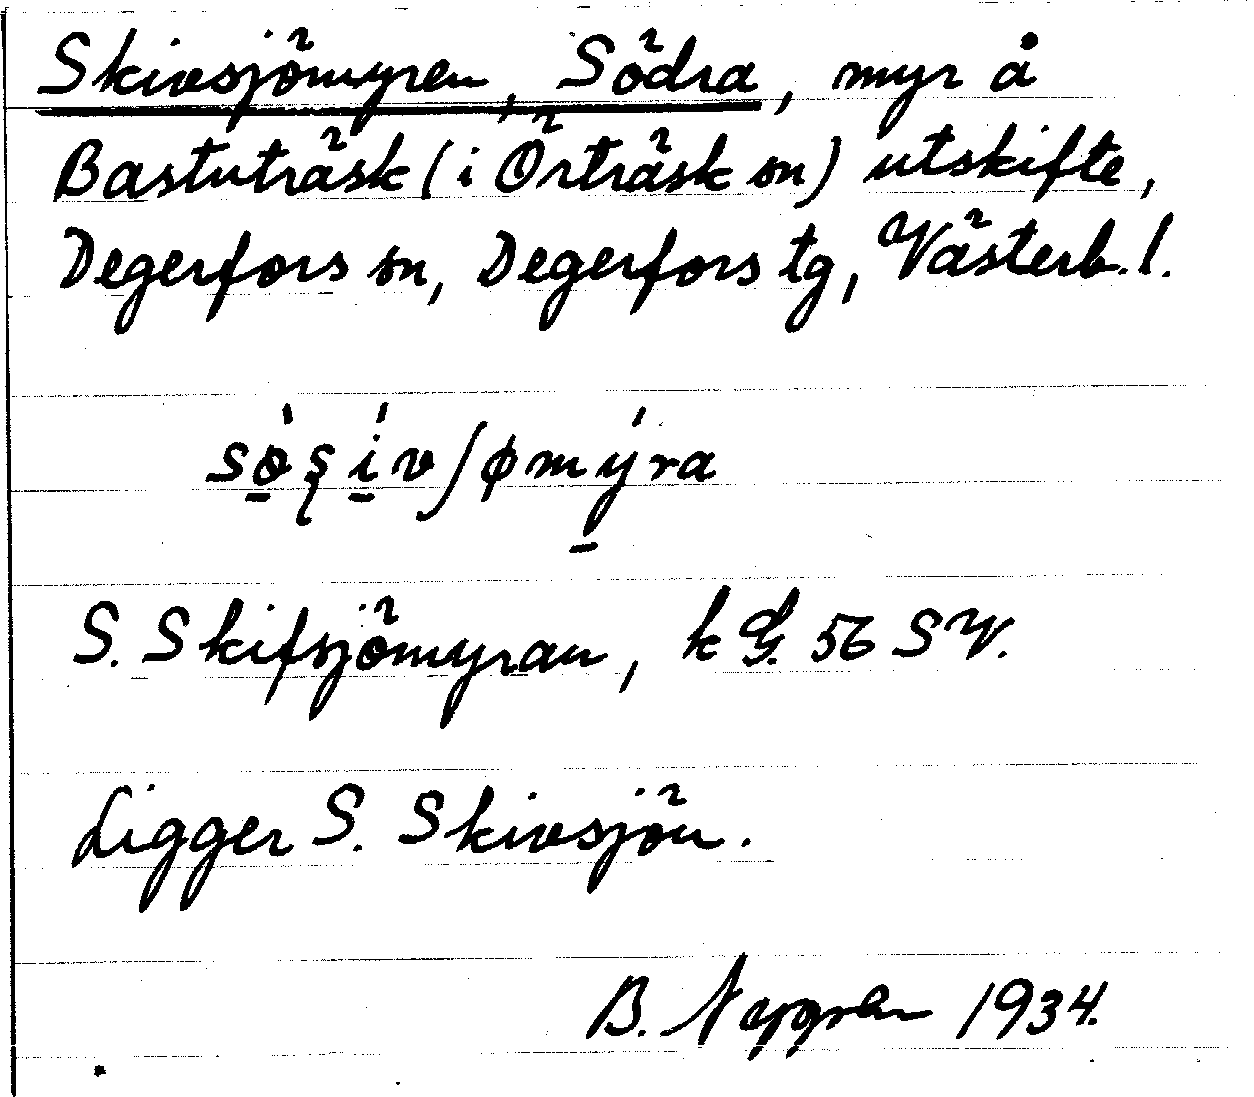 Skivsjömyren, Södra, myr å
Bastuträsk (i Örträsk sn) utskifte,
Degerfors sn, Degerfors tg, Västerb. l.
sö̀ʂív∫ømýra
S. Skifsjömyran, k G. 56 SV.
Ligger S. Skivsjön.
B. Nygren 1934.